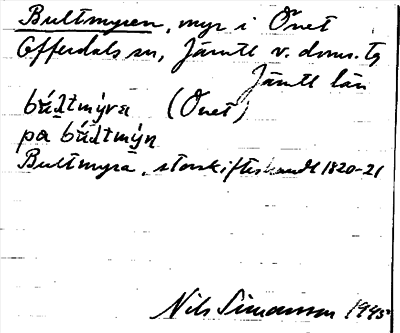 Bultmyren, myr i Önet
Offerdals sn, Jämtl v. doms. tg
Jämtl län
bʉ́ltmýra (Önet)
pa bʉ́ltmýn
Bultmyra, storskifteshandl 1820-21
Nils Simonsson 1945